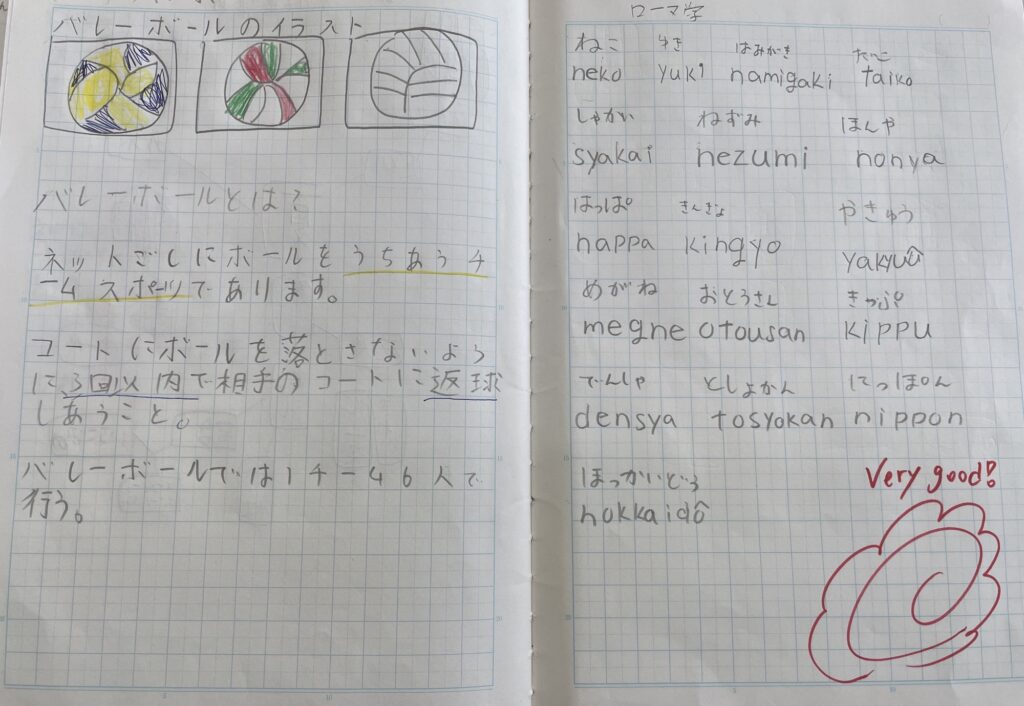 バレーボールのイラスト
バレーボールとは？
ネットごしにボールをうちあうチ
ームスポーツであります。
コートにボールを落とさないよう
に3回以内で相手のコートに返球
しあうこと。
バレーボールでは1チーム6人で
行う。
ローマ字
ねこ ゆき はみがき たいこ
neko yuki hamigaki taiko
しゃかい ねずみ ほんや
syakai nezumi honya
はっぱ きんぎょ やきゅう
happa kingyo yakyuû
めがね おとうさん きっぷ
megne otousan kippu
でんしゃ としょかん にっぽん
densya tosyokan nippon
ほっかいどう
hokkaidô
Very good!